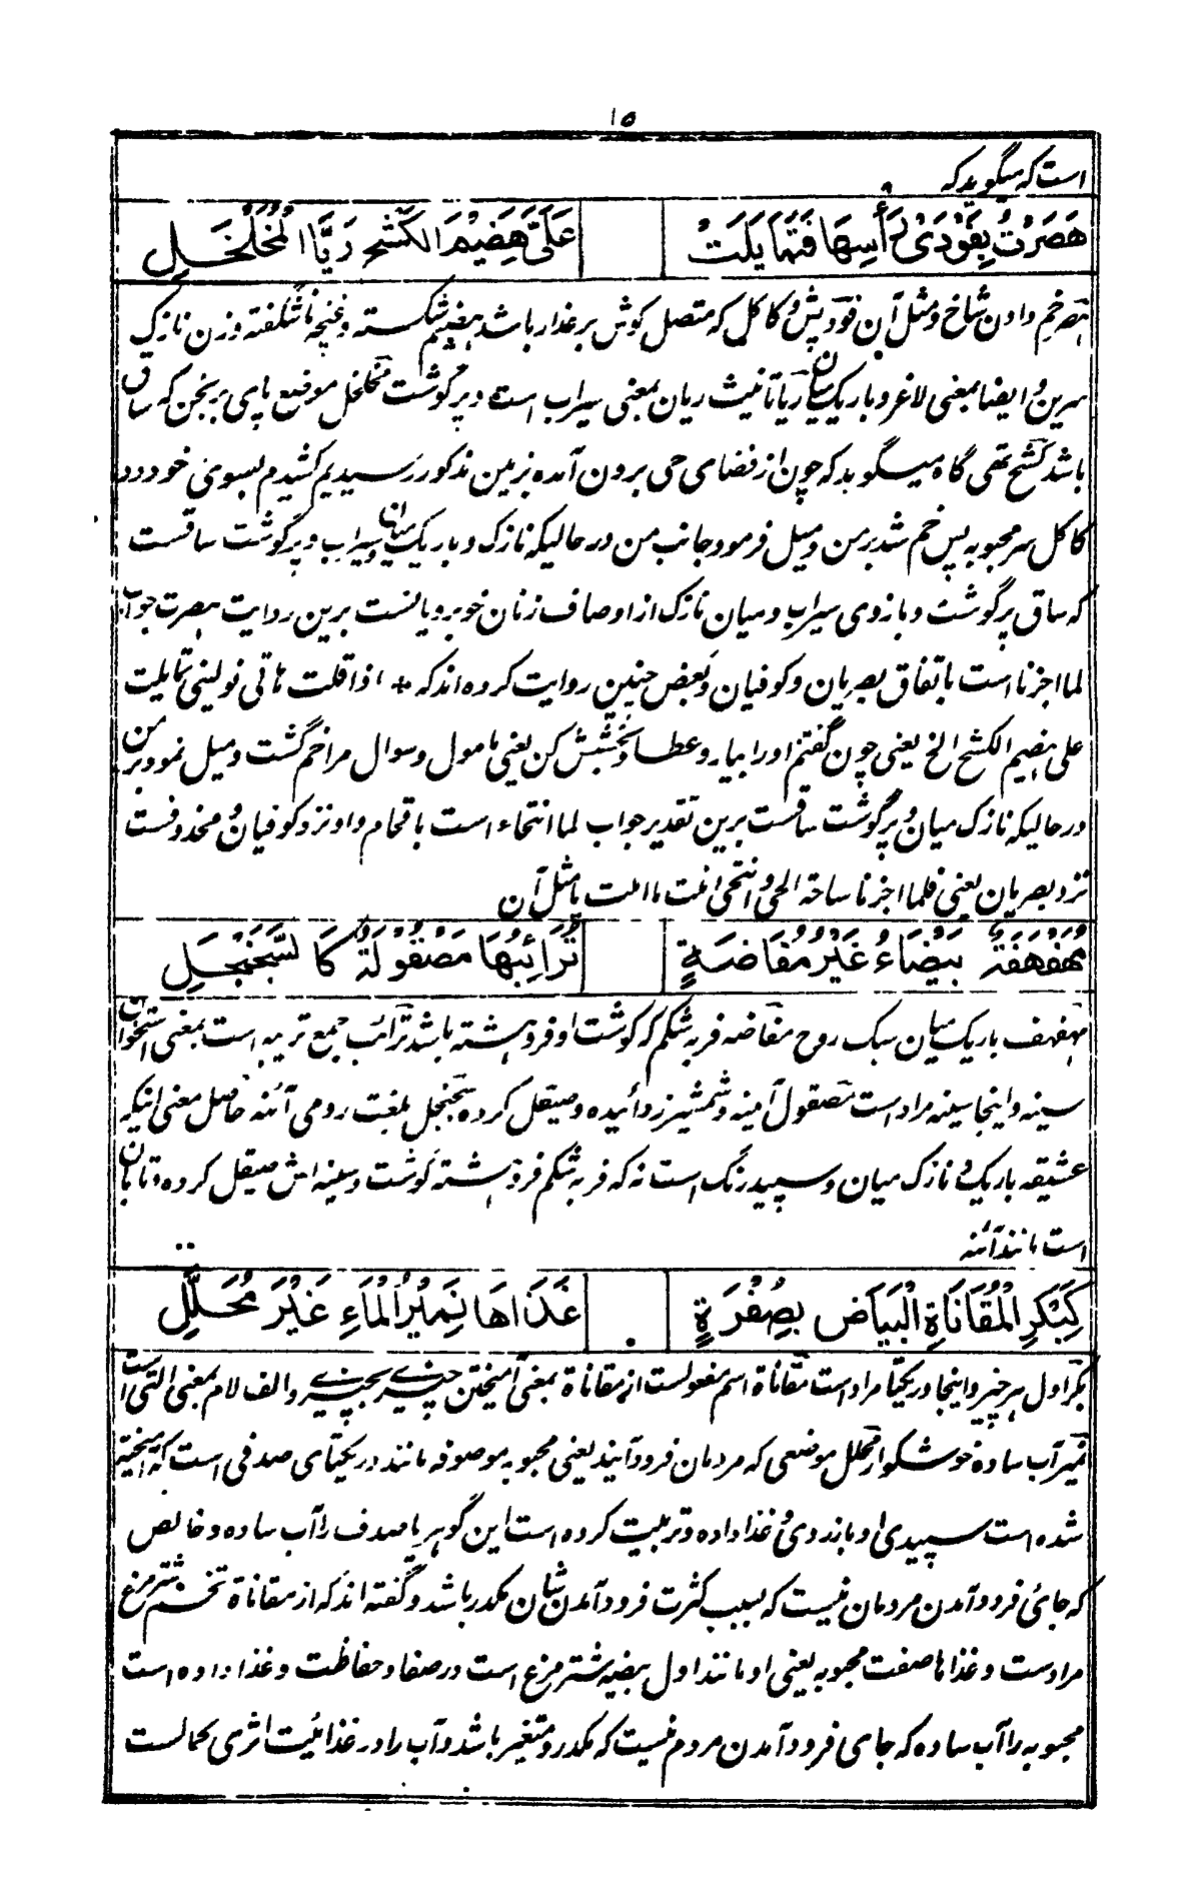 ۱۵
است که میگوید که
هَصَرْتُ بِفَوْدَیْ رَأْسِهَا فَتَمَایَلَتْ عَلَیَّ هَضِیْمَ الکَشْحِ رَیَّا الْمُخَلْخَلِ
هصر خم دادن شاخ و مثل آن فَود پیش و کاکل که متصل کوش بر عذار باشد هضیم شکسته و غنچه ناشگفته و زن نازک
سرین و ایضا بمعنی لاغر و باریک میان ریّا تانیث ریان بمعنی سیراب است و پر گوشت مخلخل موضع پای برنجن که ساق
باشد کشح تهی گاه میگوید که چون از فضای حی برون آمده بزمین مذکور رسیدیم کشیدم بسوی خود دو
کاکل سر محبوبه پس خم شد بر من و میل فرمود جانب من در حالیکه نازک و باریک میان و سیراب و پر گوشت ساقست
که ساق پر گوشت و بازوی سیراب و میان نازک از اوصاف زنان خوبرویانست برین روایت هصرت جواب
لما اجزنا است باتفاق بصریان و کوفیان و بعض چنین روایت کرده اند که * اذا قلت هاتی نولینی تمایلت
علی هضیم الکشح الخ یعنی چون گفتم او را بیار و عطا و بخشش کن یعنی مامول و سوال مرا خم گشت و میل نمود بر من
در حالیکه نازک میان و پر گوشت ساقست برین تقدیر جواب لما انتحاء است باقحام واو نزد کوفیان و محذوفست
نزد بصریان یعنی فلما اجزنا ساحة الحی و انتحی امنت ما املت یا مثل آن
مُهَفْهَفَةٌ بَیْضَاءُ غَیْرُ مُفَاضَةٍ تَرَائِبُهَا مَصْقُولَةٌ کَالسَّجَنْجَلِ
مهفهف باریک میان سبک روح مفاضه فربه شکم که گوشت او فروهشته باشد ترائب جمع تریبه است بمعنی استخوان
سینه و اینجا سینه مراد است مصقول آئینه و شمشیر زدائیده و صیقل کرده سجنجل بلغت رومی آئنه حاصل معنی اینکه
عشیقه باریک و نازک میان و سپید رنگ است نه که فربه شکم فروهشته گوشت و سینه اش صیقل کرده و تابان
است مانند آئنه
کَبِکْرِ الْمُقَانَاةِ الْبَیَاضِ بِصُفْرَةٍ غَذَاهَا نَمِیْرُ الْمَاءِ غَیْرَ مُحَلَّلِ
بکر اول هر چیز و اینجا در یکتا مراد است مقاناة اسم مفعولست از مقاناة بمعنی آمیختن چیزے بچیزے و الف لام بمعنی التی است
نمیر آب ساده خوشگوار محلل موضعی که مردمان فرود آیند یعنی محبوبه موصوفه مانند در یکتای صدفی است که آمیخته
شده است سپیدی او بازردی و غذا داده و تربیت کرده است این گوهر یا صدف را آب ساده و خالص
که جائ فرود آمدن مردمان نیست که بسبب کثرت فرود آمدن شان مکدر باشد و گفته اند که از مقاناة تخم شتر مرغ
مرادست و غذاها صفت محبوبه یعنی او مانند اول بیضه شتر مرغ است در صفا و حفاظت و غذا داده است
محبوبه را آب ساده که جای فرود آمدن مردم نیست که مکدر و متغیر باشد و آب را در غذائیت اثری بکمالست